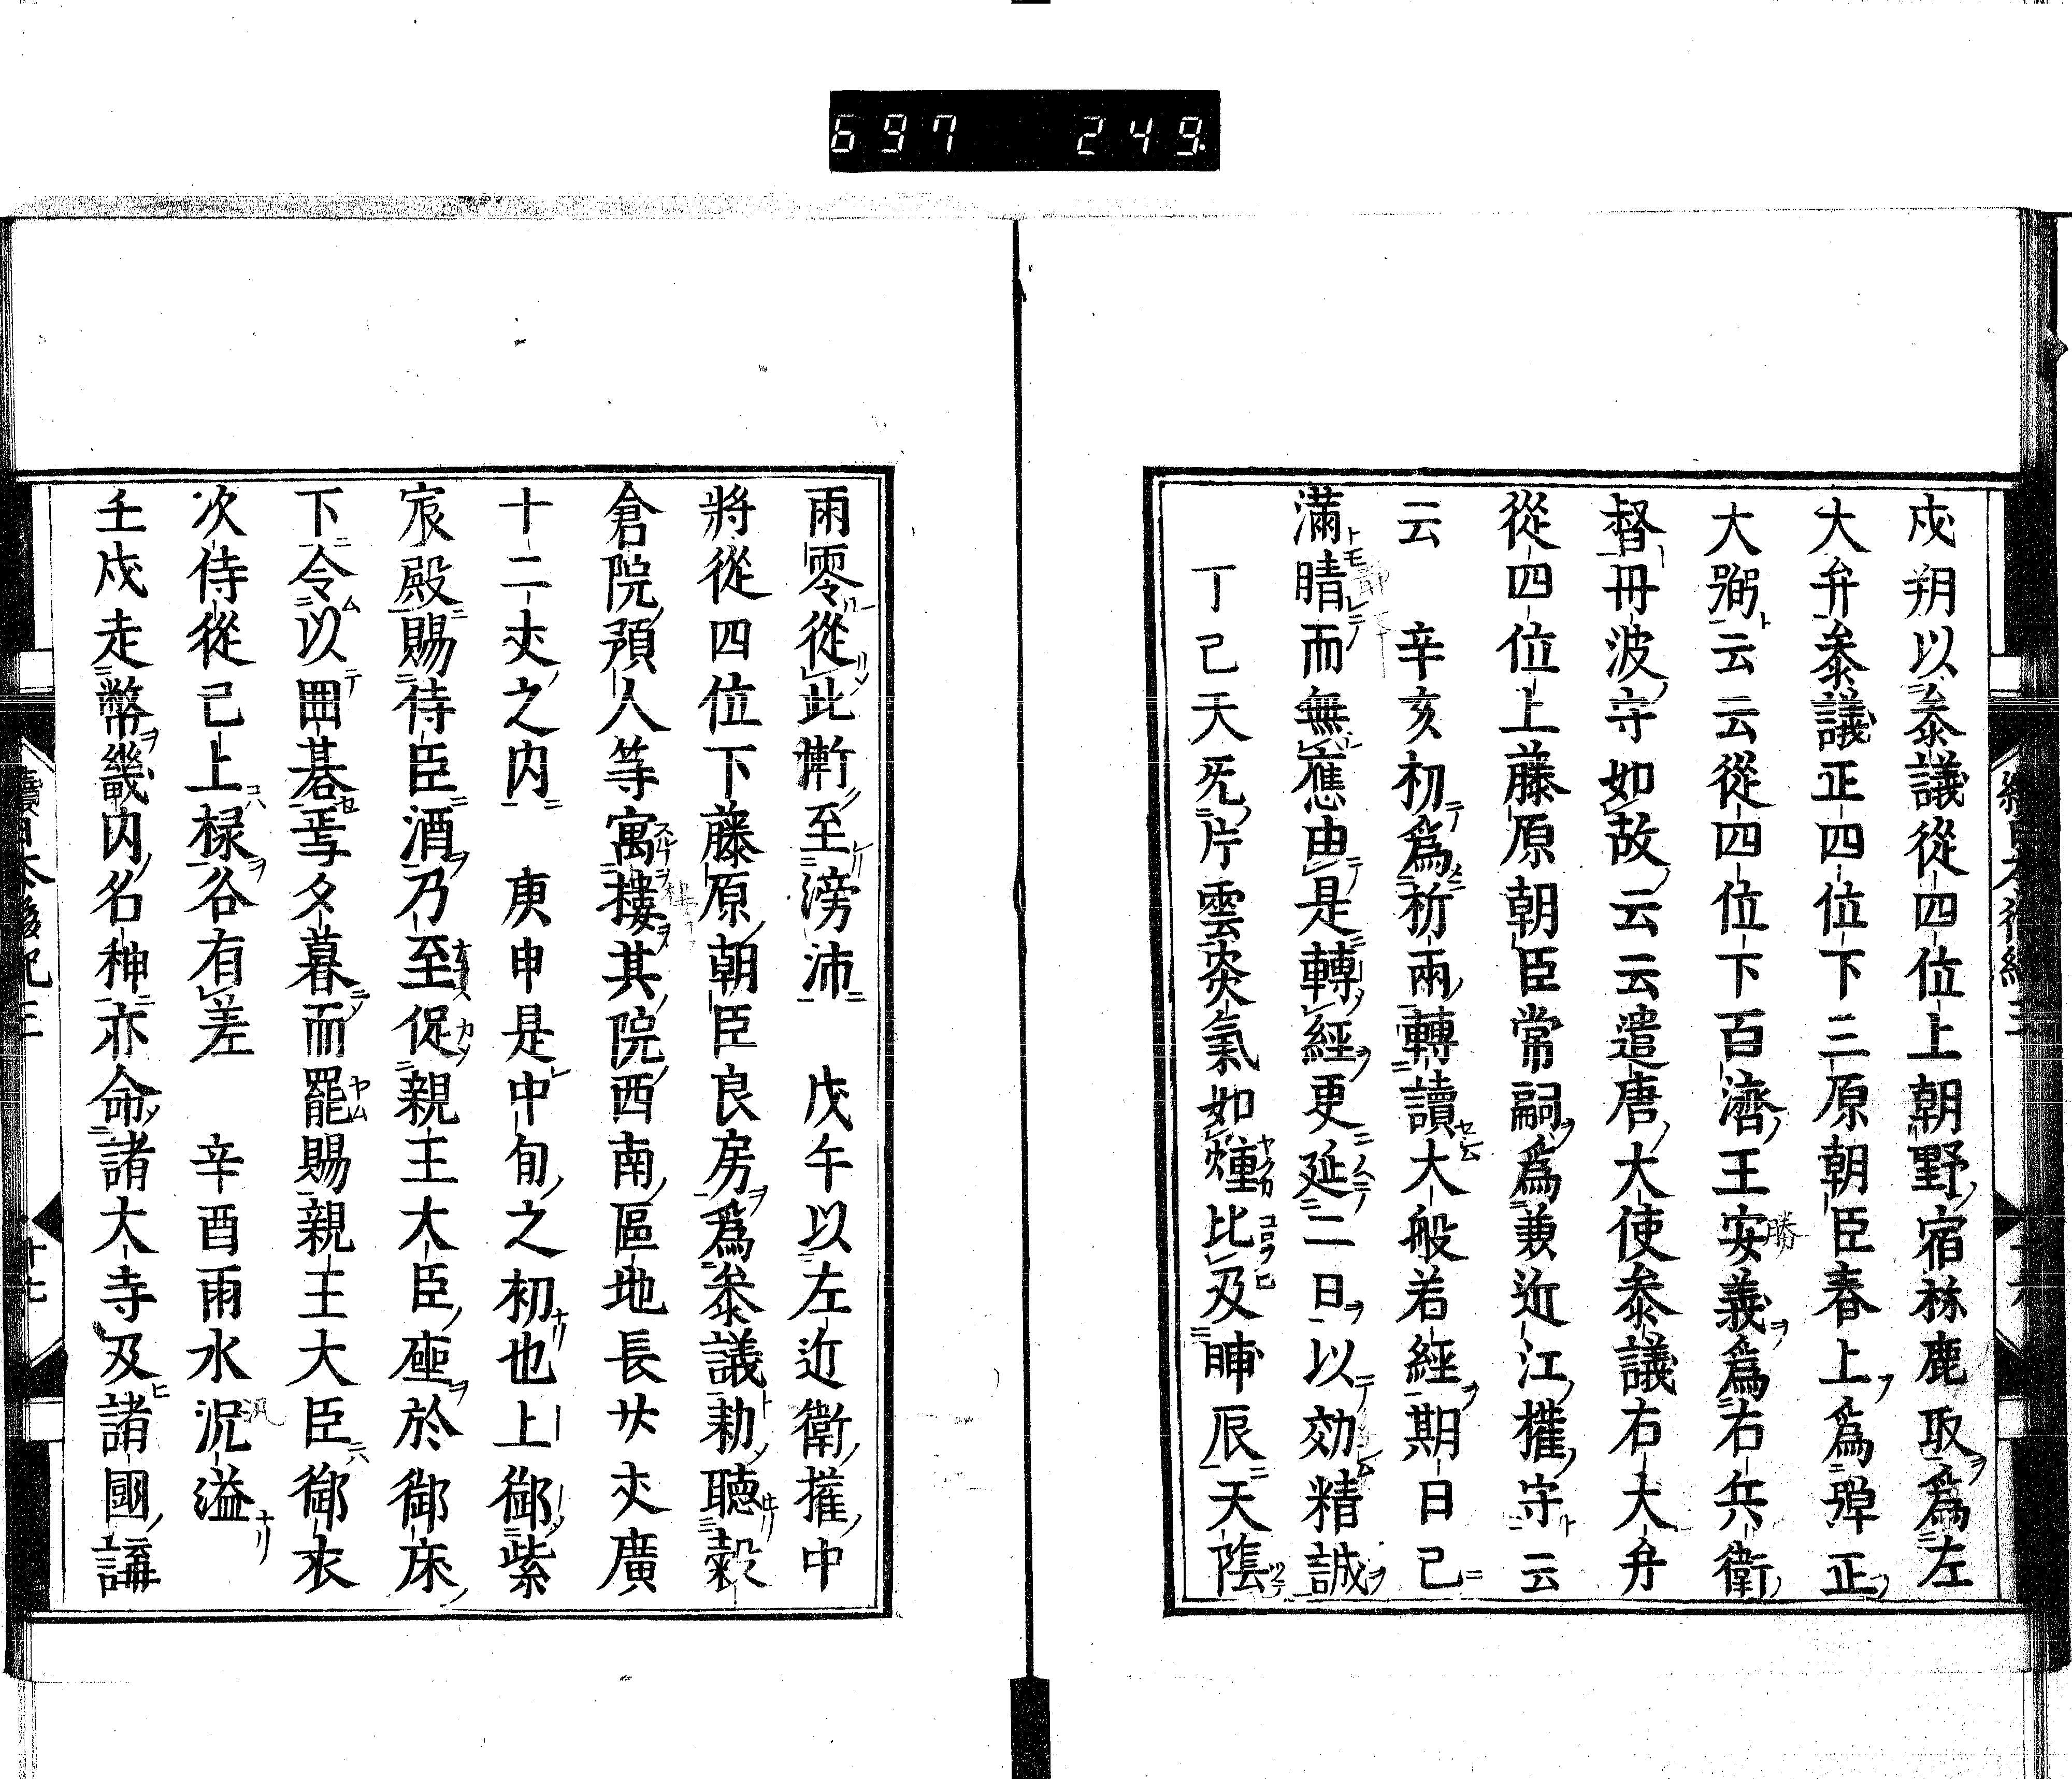 697 249.
戌朔以叅議從四位上朝野宿祢鹿取爲左
大弁叅議正四位下三原朝臣春上爲弾正
大弼云云從四位下百濟王安義爲右兵衛
勝
督丹波守如故云云遣唐大使叅議右大弁
從四位上藤原朝臣常嗣爲兼近江權守云
云 辛亥初爲祈雨轉讀大般若經期日已
滿晴而無應由是轉經更延二日以効精誠
丁巳天旡片雲炎氣如燻比及晡辰天陰
雨零從此漸至滂沛 戊午以左近衛權中
將從四位下藤原朝臣良房爲叅議勅聽穀
倉院預人等寓樓其院西南區地長廿丈廣
十二丈之内 庚申是中旬之初也上御紫
宸殿賜侍臣酒乃至促親王大臣座於御床
下令以圍碁焉夕暮而罷賜親王大臣御衣
次侍從已上祿各有差 辛酉雨水况溢
汎
壬戌走幣畿内名神亦命諸大寺及諸國講
續日本後紀三 十七